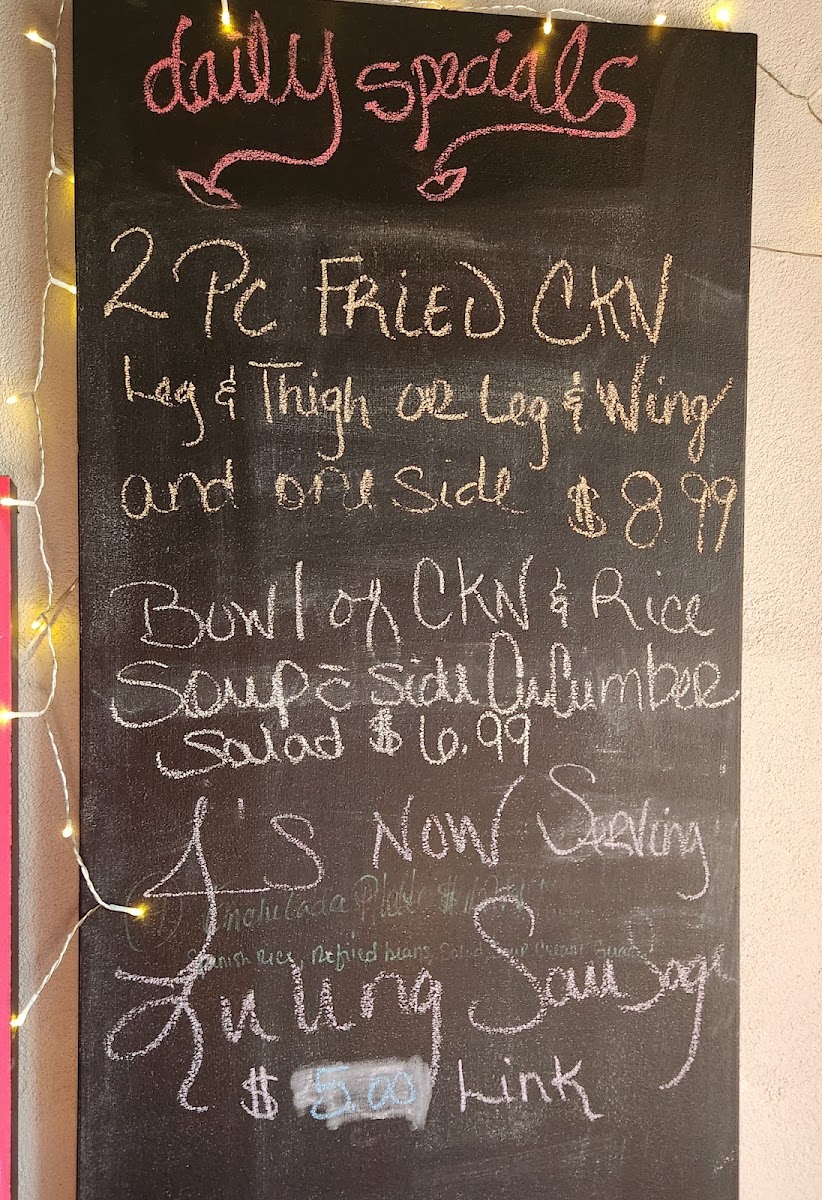 daily specials
2 Pc FRiED CKN
Leg & Thigh OR Leg & Wing
and one Side $8.99
Bowl of CKN & Rice
Soup c̄ side CuCumbeR
Salad $6.99
J's NOW SeRving
Enchilada Plate $
Spanish Rice, Refried beans, Salad, Sour Cream, Guac
Luling Sausage
$5.00 Link